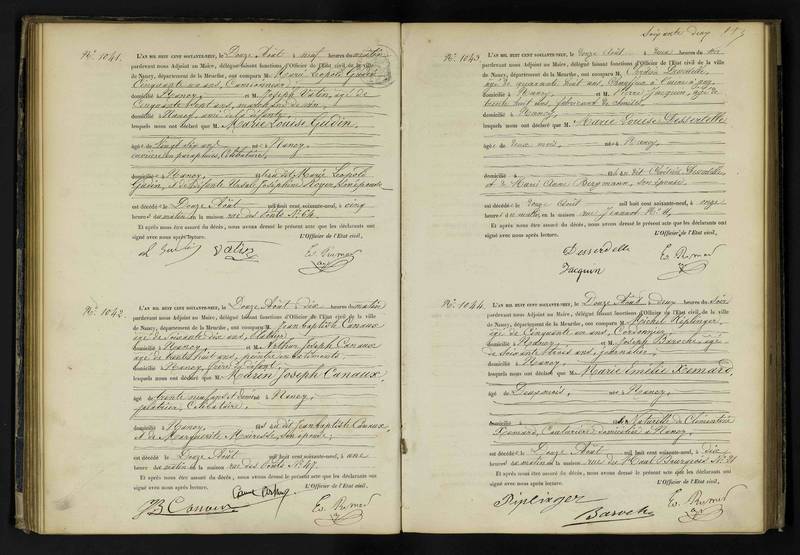 Soixante deux 113
No. 1041.
L'AN MIL HUIT CENT SOIXANTE-NEUF, le Douze Août à neuf heures du matin
pardevant nous Adjoint au Maire, délégué faisant fonctions d'Officier de l'Etat civil de la ville
de Nancy, département de la Meurthe, ont comparu M. Marie Léopold Gudin
Cinquante un ans, Camionneur,
domicilié à Nancy, et M. Joseph Vatin, âgé de
Cinquante sept ans, marchand de vin,
domicilié à Nancy,
lesquels nous ont déclaré que M. Marie Louise Gudin,
âgée de Vingt six ans née à Nancy,
Célibataire,
domiciliée à Nancy, fille de dit Marie Léopold
Gudin, et de défunte Ursule Joséphine Royer, son épouse
est décédée le Douze Août mil huit cent soixante-neuf, à cinq
heures du matin en la maison rue des Ponts No. 64.
Et après nous être assuré du décès, nous avons dressé le présent acte que les déclarants ont
signé avec nous après lecture. L'Officier de l'Etat civil,
No. 1042.
L'AN MIL HUIT CENT SOIXANTE-NEUF, le Douze Août à dix heures du matin
pardevant nous Adjoint au Maire, délégué faisant fonctions d'Officier de l'Etat civil de la ville
de Nancy, département de la Meurthe, ont comparu M. Jean baptiste Canaux
âgé de Soixante dix ans,
domicilié à Nancy, et M. Arthur Joseph Canaux
âgé de trente huit ans, peintre en bâtiments,
domicilié à Nancy, frère du défunt,
lesquels nous ont déclaré que M. Adrien Joseph Canaux,
âgé de trente neuf ans et demi né à Nancy,
plâtrier, Célibataire,
domicilié à Nancy, fils du dit Jean baptiste Canaux,
et de Marguerite son épouse;
est décédé le Douze Août mil huit cent soixante-neuf, à une
heure du matin en la maison rue des Ponts No. 47.
Et après nous être assuré du décès, nous avons dressé le présent acte que les déclarants ont
signé avec nous après lecture. L'Officier de l'Etat civil,
No. 1043
L'AN MIL HUIT CENT SOIXANTE-NEUF, le Douze Août à deux heures du soir
pardevant nous Adjoint au Maire, délégué faisant fonctions d'Officier de l'Etat civil de la ville
de Nancy, département de la Meurthe, ont comparu M.
âgé de quarante huit ans, Chauffeur à l'usine à gaz,
domicilié à Nancy, et M. Pierre Jacquin, âgé de
trente huit ans, fabricant de
domicilié à Nancy,
lesquels nous ont déclaré que M. Marie Louise Desserdelle
âgée de deux mois, née à Nancy,
domiciliée à
et de Marie Anne Bergmann, son épouse,
est décédée le Douze Août mil huit cent soixante-neuf, à onze
heures du matin, en la maison rue Jeannot No. 11,
Et après nous être assuré du décès, nous avons dressé le présent acte que les déclarants ont
signé avec nous après lecture. L'Officier de l'Etat civil,
Desserdelle
Jacquin
No. 1044.
L'AN MIL HUIT CENT SOIXANTE-NEUF, le Douze Août à deux heures du soir
pardevant nous Adjoint au Maire, délégué faisant fonctions d'Officier de l'Etat civil de la ville
de Nancy, département de la Meurthe, ont comparu M. Michel Riplinger,
âgé de Cinquante un ans, Cordonnier,
domicilié à Nancy, et M. Joseph âgé
de Soixante trois ans, journalier,
domicilié à Nancy,
lesquels nous ont déclaré que M. Marie Emélie Xemard,
âgée de Deux mois, née à Nancy,
domiciliée à fille Naturelle de Clémentine
Xemard, Couturière domiciliée à Nancy,
est décédée le Douze Août mil huit cent soixante-neuf, à dix
heures du matin en la maison rue du Haut Bourgeois No. 21
Et après nous être assuré du décès, nous avons dressé le présent acte que les déclarants ont
signé avec nous après lecture. L'Officier de l'Etat civil,
Riplinger